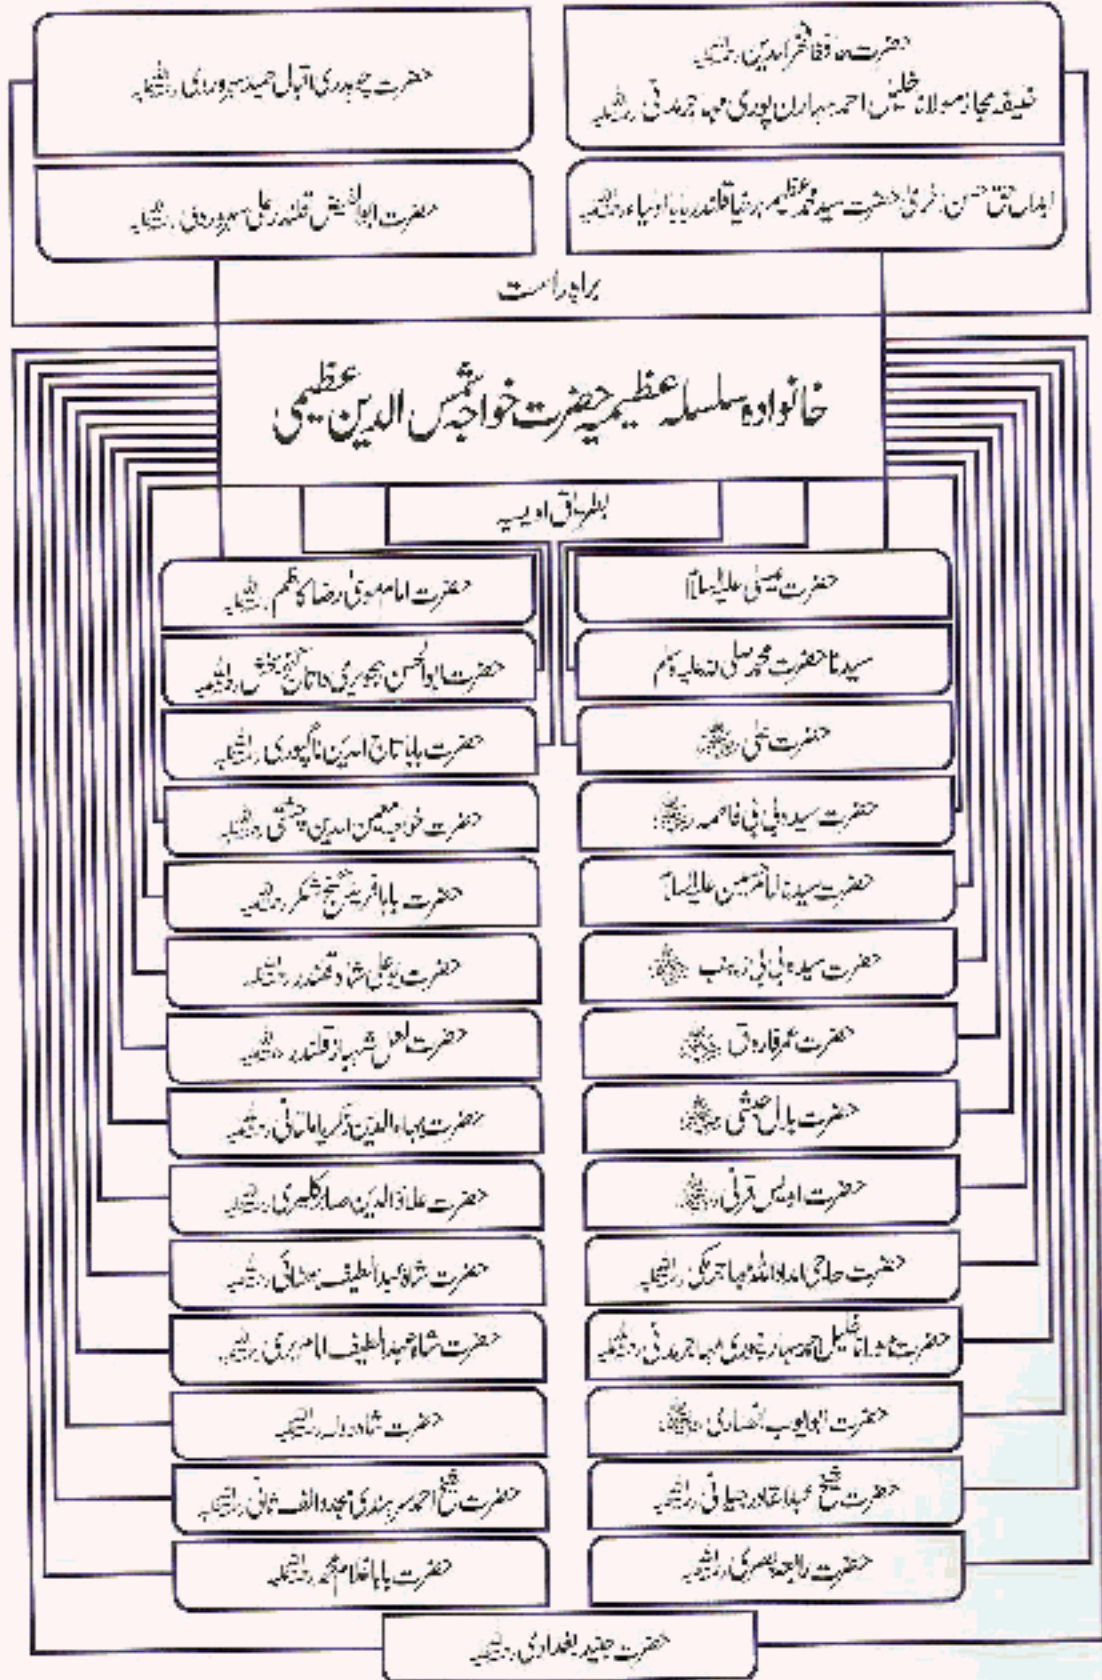 حضرت حافظ فخر الدین رحمۃ اللہ علیہ
خلیفہ مجاز مولانا خلیل احمد سہارن پوری مہاجر مدنی رحمۃ اللہ علیہ
حضرت چوہدری اقبال حمید سہروردی رحمۃ اللہ علیہ
ابدال حق حسن اخریٰ حضرت سید محمد عظیم برخیا قلندر بابا اولیاء رحمۃ اللہ علیہ
حضرت ابوالفیض قلندر علی سہروردی رحمۃ اللہ علیہ
براہ راست
خانوادہ سلسلہ عظیمیہ حضرت خواجہ شمس الدین عظیمی
بطریق اویسیہ
حضرت عیسیٰ علیہ السلام
سیدنا حضرت محمد صلی اللہ علیہ وسلم
حضرت علی رضی اللہ عنہ
حضرت سیدہ بی بی فاطمہ رضی اللہ عنہا
حضرت سیدنا امام حسین علیہ السلام
حضرت سیدہ بی بی زینب رضی اللہ عنہا
حضرت عمر فاروق رضی اللہ عنہ
حضرت بلال حبشی رضی اللہ عنہ
حضرت اویس قرنی رضی اللہ عنہ
حضرت حاجی امداد اللہ مہاجر مکی رحمۃ اللہ علیہ
حضرت مولانا خلیل احمد سہارنپوری مہاجر مدنی رحمۃ اللہ علیہ
حضرت ابو ایوب انصاری رضی اللہ عنہ
حضرت شیخ عبدالقادر جیلانی رحمۃ اللہ علیہ
حضرت رابعہ بصری رحمۃ اللہ علیہ
حضرت امام موسیٰ رضا کاظم رحمۃ اللہ علیہ
حضرت ابوالحسن ہجویری داتا گنج بخش رحمۃ اللہ علیہ
حضرت بابا تاج الدین ناگپوری رحمۃ اللہ علیہ
حضرت خواجہ معین الدین چشتی رحمۃ اللہ علیہ
حضرت بابا فرید گنج شکر رحمۃ اللہ علیہ
حضرت بو علی شاہ قلندر رحمۃ اللہ علیہ
حضرت لعل شہباز قلندر رحمۃ اللہ علیہ
حضرت بہاء الدین زکریا ملتانی رحمۃ اللہ علیہ
حضرت علاؤ الدین صابر کلیری رحمۃ اللہ علیہ
حضرت شاہ عبدالطیف بھٹائی رحمۃ اللہ علیہ
حضرت شاہ عبدالطیف امام بری رحمۃ اللہ علیہ
حضرت شاہ دولہ رحمۃ اللہ علیہ
حضرت شیخ احمد سرہندی مجدد الف ثانی رحمۃ اللہ علیہ
حضرت بابا غلام محمد رحمۃ اللہ علیہ
حضرت جنید بغدادی رحمۃ اللہ علیہ